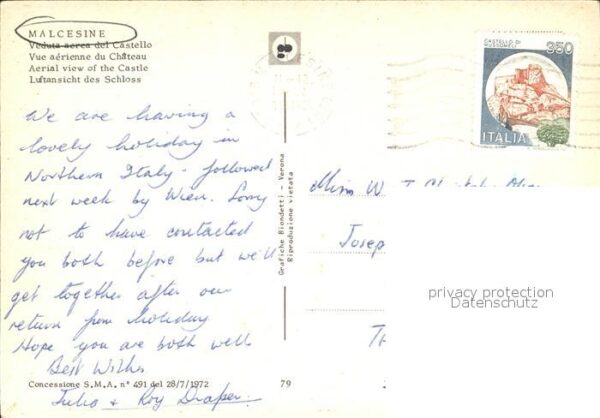 MALCESINE
Veduta aerea del Castello
Vue aérienne du Château
Aerial view of the Castle
Luftansicht des Schloss
We are having a
lovely holiday in
Northern Italy - followed
next week by Wien. Sorry
not to have contacted
you both before but we'll
get together after our
return from holiday
Hope you are both well
Best Wishes
Julia & Roy Draper.
Concessione S.M.A. n° 491 del 28/7/1972
79
Grafiche Biondetti - Verona
Riproduzione vietata
CASTELLO DI
350
ITALIA
Miss W. T.
Josep
Th
privacy protection
Datenschutz